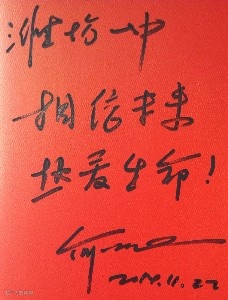 潍坊一中
相信未来
热爱生命!
2014.11.22